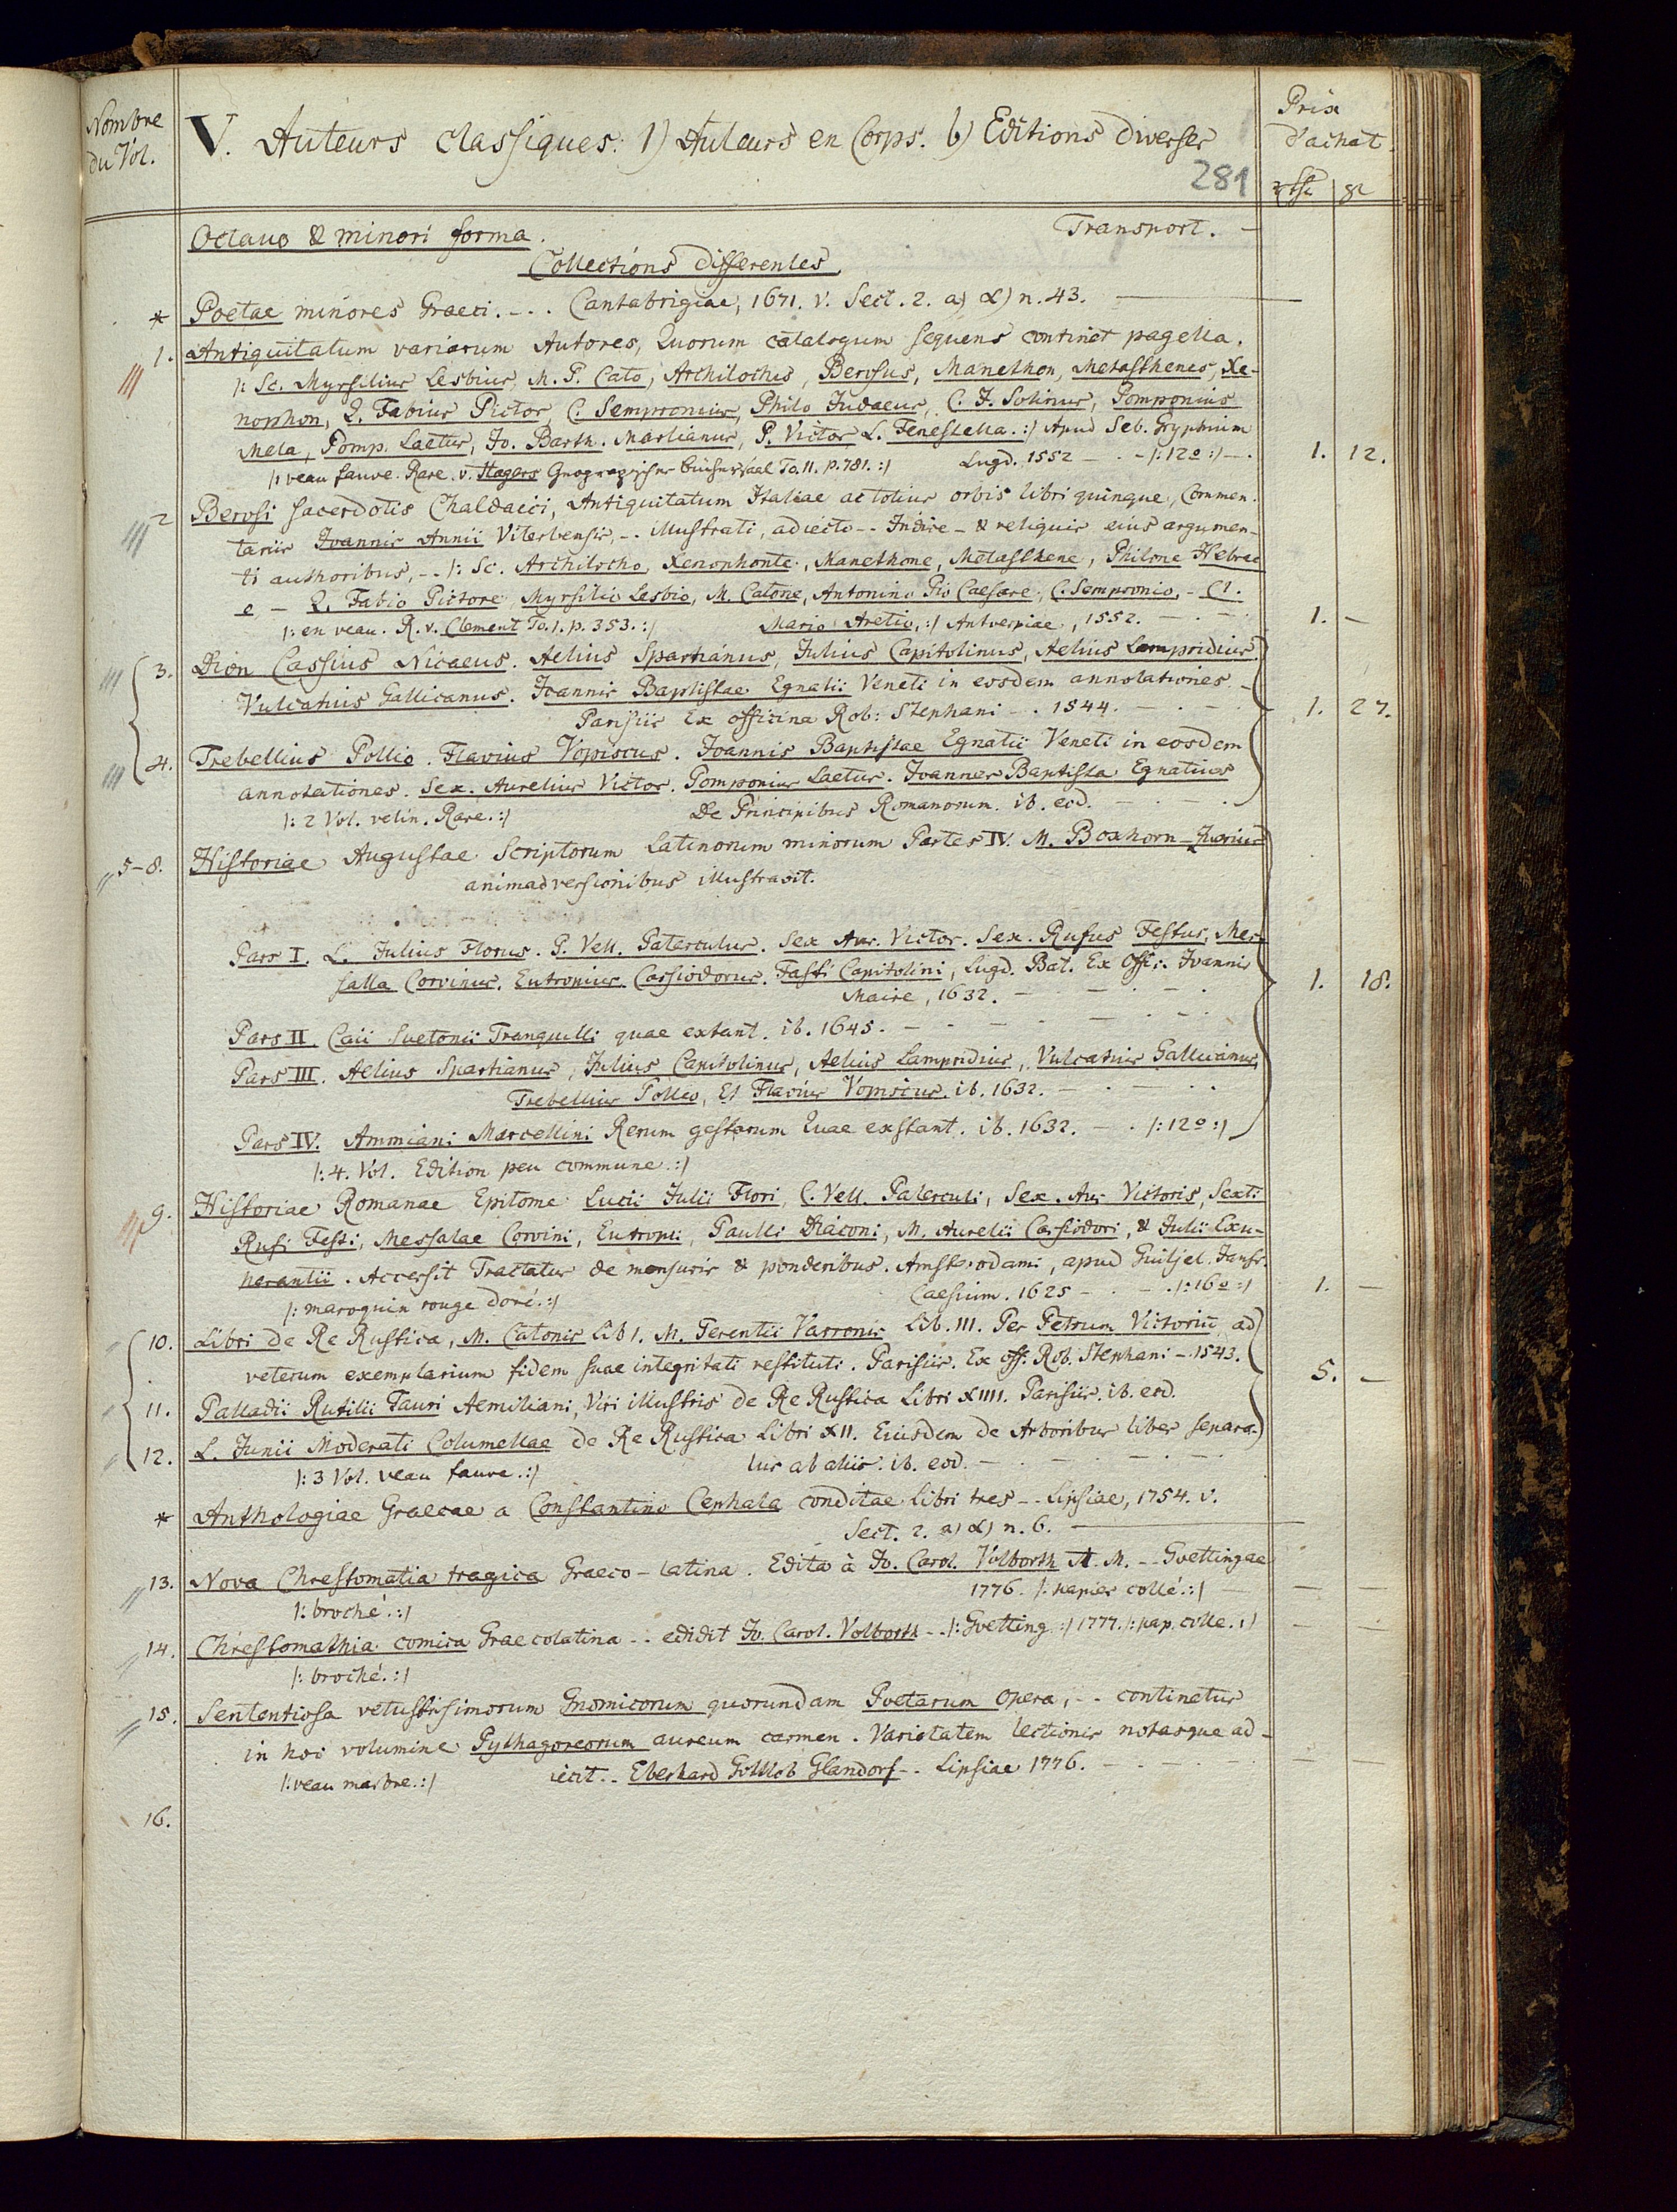 Nombre du Vol.
V. Auteurs classiques: 1) Auteurs en Corps. b) Editions diverses
Prix d'achat.
281
Octavo & minori forma.
Transport. –
Collections differentes
* Poetae minores Graeci. -.. Cantabrigiae, 1671. v. Sect. 2. a) α) n. 43. —
1. Antiquitatum variarum Autores, Quorum catalogum sequens continet pagella.
/: Sc. Myrsilius Lesbius, M. P. Cato, Archilochus, Berosus, Manethon, Metasthenes, Xe-
nophon, Q. Fabius Pictor, C. Sempronius, Philo Judaeus, C. J. Solinus, Pomponius
Mela, Pomp. Laetus, Jo. Barth. Marlianus, P. Victor L. Fenestella. :/ Apud Seb. Gryphium
/: veau fauve. Rare. v. Hagers Geographischer Büchersaal To. II. p. 781. :/ Lugd. 1552 – . - /: 12o :/ – . 1. 12.
2 Berosi sacerdotis Chaldaici, Antiquitatum Italiae ac totius orbis libri quinque, Commen-
tariis Joannis Annii Viterbensis, -. illustrati, adiecto -- Indice - & reliquis eius argumen-
ti authoribus, -. /: Sc. Archilocho, Xenophonte, Manethone, Metasthene, Philone Hebrae
o – Q. Fabio Pictore, Myrsilio Lesbio, M. Catone, Antonino Pio Caesare, C. Sempronio, – Cl.
/: en veau. R. v. Clement To. 1. p. 353. :/ Mario Aretio, :/ Antverpiae, 1552. – . – . 1. –
3. Dion Cassius Nicaeus. Aelius Spartianus, Julius Capitolinus, Aelius Lampridius.
Vulcatius Gallicanus. Joannis Baptistae Egnatii Veneti in eosdem annotationes –
Parisiis Ex officina Rob: Stephani - . 1544. – . – . 1. 27.
4. Trebellius Pollio. Flavius Vopiscus. Joannis Baptistae Egnatii Veneti in eosdem
annotationes. Sex. Aurelius Victor. Pomponius Laetus. Joannes Baptista Egnatius
/: 2 Vol. velin. Rare. :/ De Principibus Romanorum. ib. eod. – . – .
5-8. Historiae Augustae Scriptorum Latinorum minorum Partes IV. M. Boxhorn-Zuerius
animadversionibus illustravit.
Pars I. L. Julius Florus. P. Vell. Paterculus. Sex Aur. Victor. Sex. Rufus Festus, Mes-
salla Corvinus. Eutropius. Cassiodorus. Fasti Capitolini, Lugd. Bat. Ex Offic. Joannis
Maire, 1632. – . – . – . 1. 18.
Pars II Caii Suetonii Tranquilli quae extant. ib. 1645. – - – - – . - .
Pars III. Aelius Spartianus, Julius Capitolinus, Aelius Lampridius, Vulcatius Gallicanus,
Trebellius Pollio, Et Flavius Vopiscus. ib. 1632. – . – . .
Pars IV. Ammiani Marcellini Rerum gestarum Quae exstant. ib. 1632. – . /: 12o :/
/: 4. Vol. Edition peu commune. :/
9. Historiae Romanae Epitome Lucii Julii Flori, C. Vell. Paterculi, Sex. Aur. Victoris, Sexti
Rufi Festi, Messalae Corvini, Eutropii, Paulli Diaconi, M. Aurelii Cassiodori, & Julii Exu-
perantii. Accessit Tractatus de mensuris & ponderibus. Amsterodami, apud Guiljel. Jansz.
/: maroquin rouge doré. :/ Caesium. 1625 – . – . /: 16o :/ 1. –
10. Libri de Re Rustica, M. Catonis Lib 1. M. Terentii Varronis Lib. III. Per Petrum Victoriū, ad
veterum exemplarium fidem suae integritati restituti. Parisiis. Ex off. Rob. Stephani – 1543.
5. –
11. Palladii Rutilii Tauri Aemiliani, Viri illustris de Re Rustica Libri XIIII. Parisiis. ib. eod.
12. L. Junii Moderati Columellae de Re Rustica Libri XII. Eiusdem de Arboribus liber separa-
/: 3 Vol. veau fauve. :/ tus ab aliis. ib. eod. – . – . – . –
* Anthologiae Graecae a Constantino Cephala conditae libri tres -- Lipsiae, 1754. v.
Sect. 2. a) α) n. 6. —
13. Nova Chrestomatia tragica Graeco-latina. Edita à Jo. Carol. Volborth A. M. -- Goettingae
/: broché. :/ 1776. /: papier collé. :/ – – –
14. Chrestomathia comica Graecolatina -. edidit Jo. Carol. Volborth -. /: Goetting. :/ 1777. /: pap. colle. :/ – –
/: broché. :/
15. Sententiosa vetustissimorum Gnomicorum quorundam Poetarum opera, -. continetur
in hoc volumine Pythagoreorum aureum carmen. Varietatem lectionis notasque ad-
/: veau marbre. :/ iecit .. Eberhard Gottlob Glandorf -. Lipsiae 1776. – . – . – –
16.